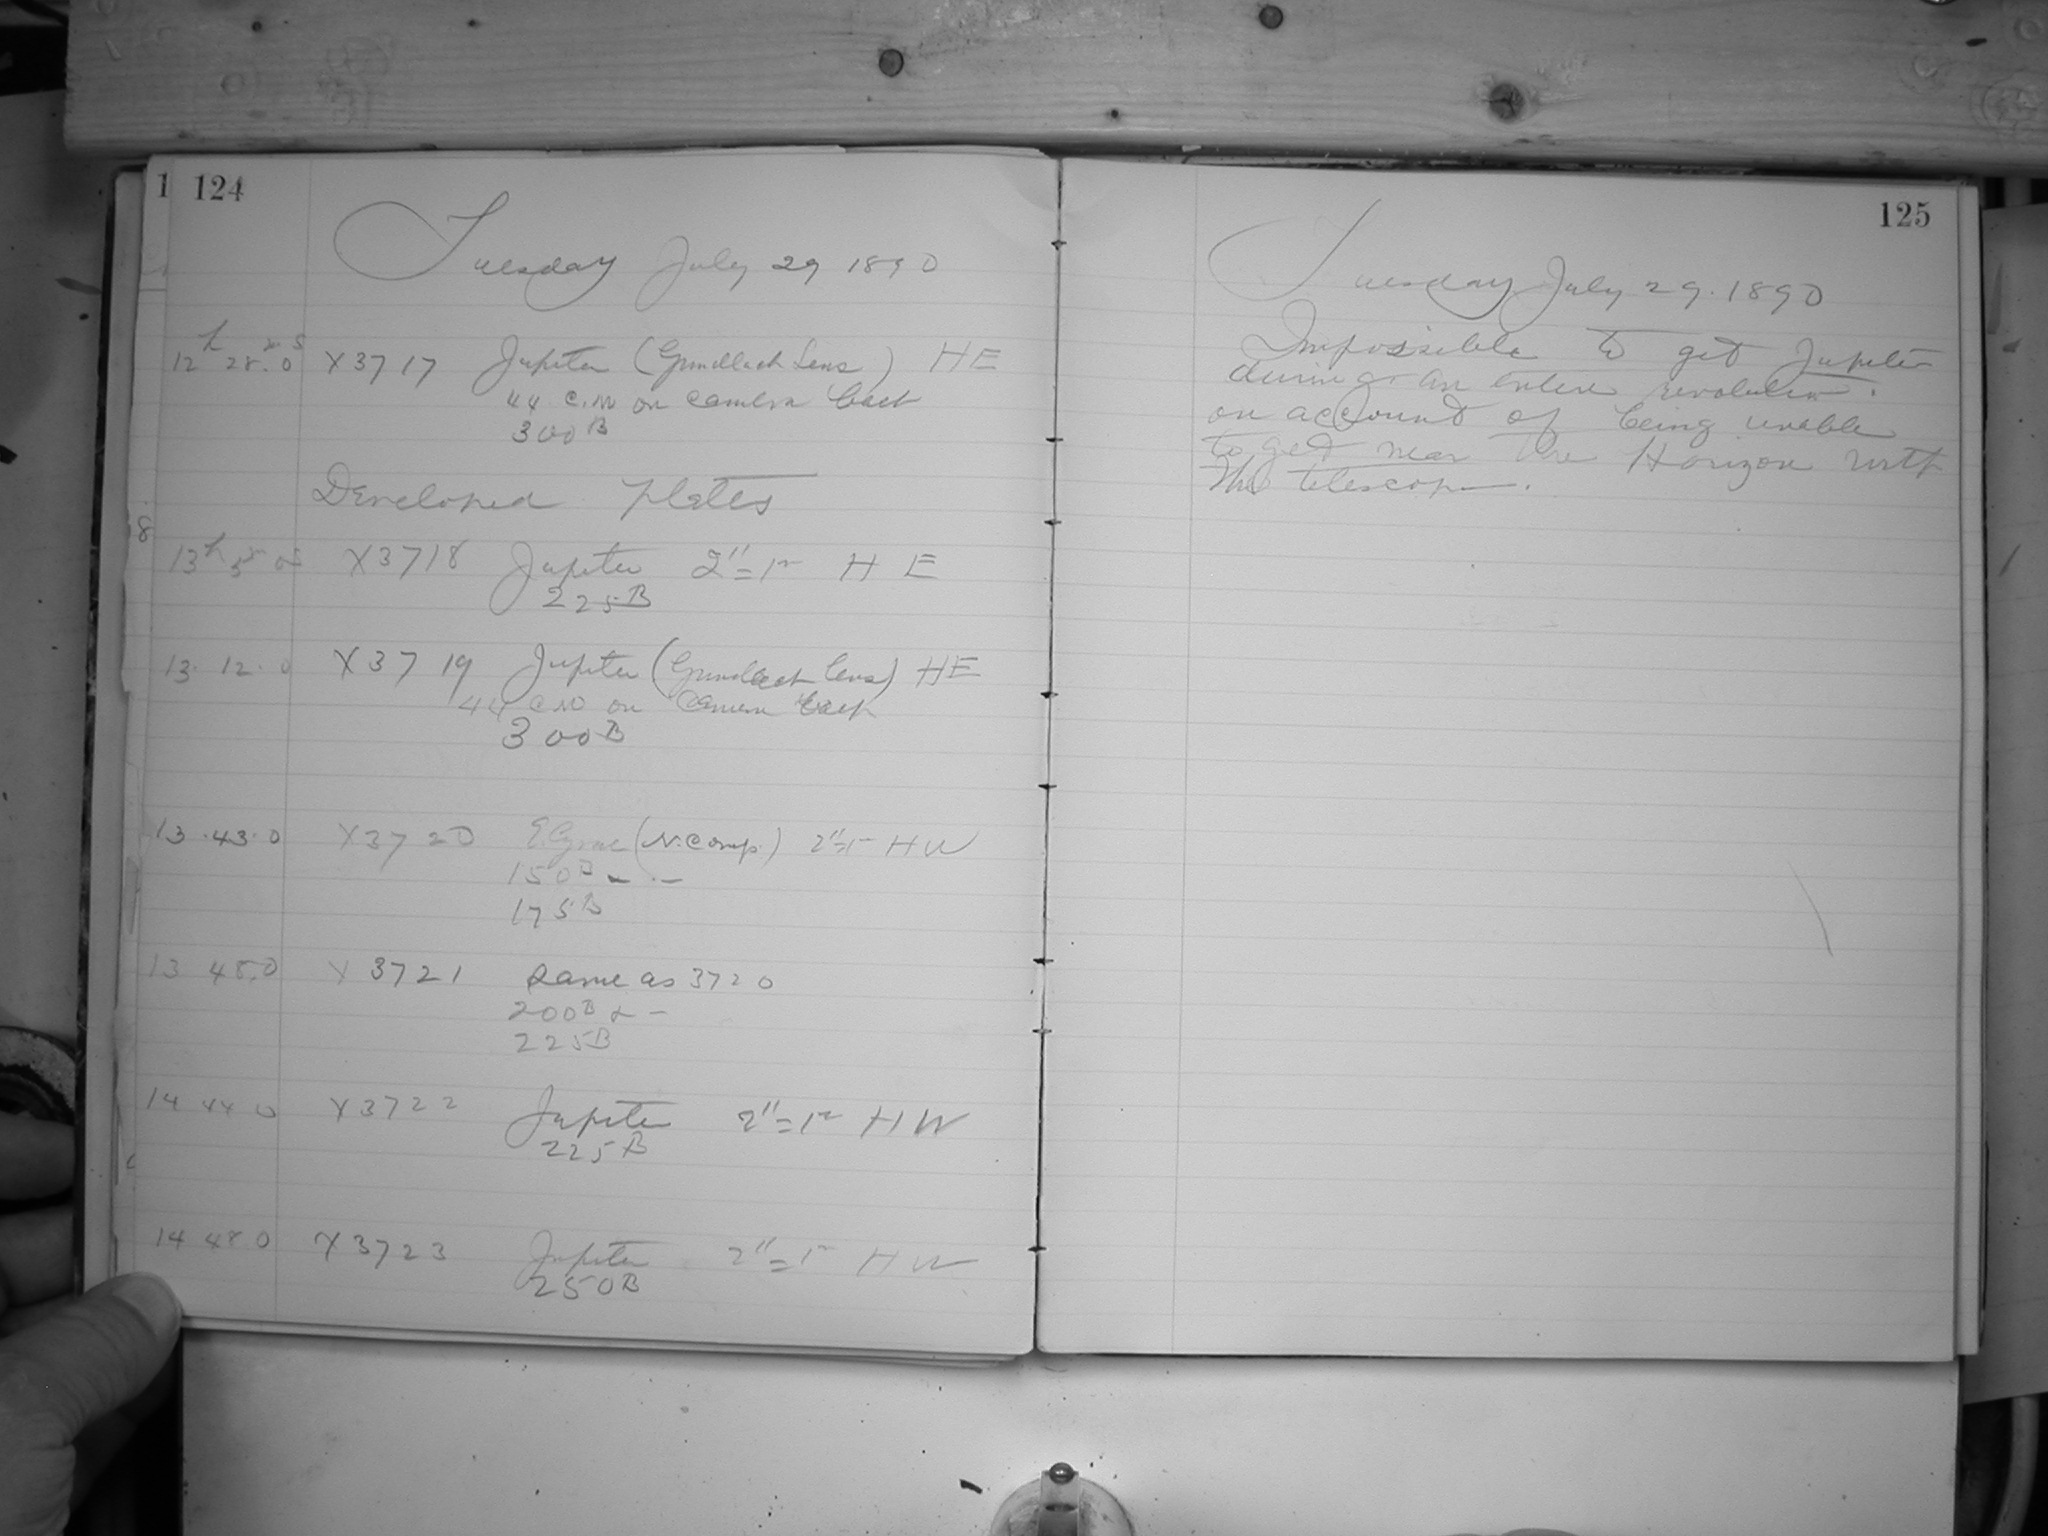 1 124
Tuesday July 29 1890
12h 28m.0s X3717 Jupiter (Gundlach Lens) HE
44 c.m on camera back
300B
Developed plates
8
13h 5m 0s X3718 Jupiter 2"=1r H E
225B
13. 12. 0 X3719 Jupiter (Gundlach lens) HE
44 c.m on camera back
300B
13.43.0 X3720 (N. Comp.) 2"=1r HW
150B
175B
13 48.0 X3721 Same as 3720
200B
225B
14 44 0 X3722 Jupiter 2"=1r HW
225B
14 48 0 X3723 Jupiter 2"=1r HW
250B
125
Tuesday July 29. 1890
Impossible to get Jupiter
during an entire revolution.
on account of being unable
to get near the Horizon with
the telescope.